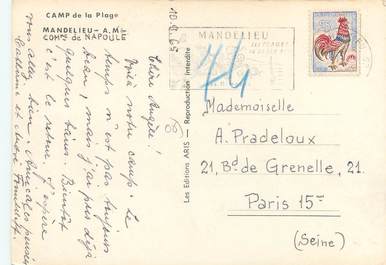 CAMP de la Plage
MANDELIEU - A.M.
COMᴺᴱ de NAPOULE
Chère Angèle!
Voilà notre camp. Le
temps n'est pas toujours
beau, mais j'ai pris déjà
quelques bains. Bientôt
c'est le retour. J'espère
vous allez bien. Amicales pensées
Les Editions ARIS - Reproduction interdite
MANDELIEU
74
Mademoiselle
A. Pradeloux
21, Bd de Grenelle, 21.
Paris 15me
(Seine)